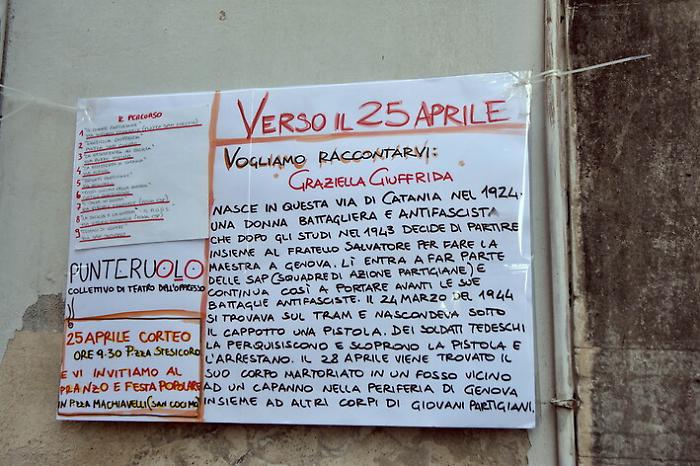 IL PERCORSO
1
2
3
4
5
6
7
8
9
PUNTERUOLO
COLLETTIVO DI TEATRO DELL'OPPRESSO
25 APRILE CORTEO
ORE 9:30 P.ZZA STESICORO
E VI INVITIAMO AL
PRANZO E FESTA POPOLARE
IN P.ZZA MACHIAVELLI (SAN COCIMO)
VERSO IL 25 APRILE
VOGLIAMO RACCONTARVI:
GRAZIELLA GIUFFRIDA
NASCE IN QUESTA VIA DI CATANIA NEL 1924.
UNA DONNA BATTAGLIERA E ANTIFASCISTA
CHE DOPO GLI STUDI NEL 1943 DECIDE DI PARTIRE
INSIEME AL FRATELLO SALVATORE PER FARE LA
MAESTRA A GENOVA. LÌ ENTRA A FAR PARTE
DELLE SAP (SQUADRE DI AZIONE PARTIGIANE) E
CONTINUA COSÌ A PORTARE AVANTI LE SUE
BATTAGLIE ANTIFASCISTE. IL 24 MARZO DEL 1944
SI TROVAVA SUL TRAM E NASCONDEVA SOTTO
IL CAPPOTTO UNA PISTOLA. DEI SOLDATI TEDESCHI
LA PERQUISISCONO E SCOPRONO LA PISTOLA E
L'ARRESTANO. IL 28 APRILE VIENE TROVATO IL
SUO CORPO MARTORIATO IN UN FOSSO VICINO
AD UN CAPANNO NELLA PERIFERIA DI GENOVA
INSIEME AD ALTRI CORPI DI GIOVANI PARTIGIANI.